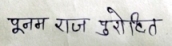 पूनम राज पुरोहित